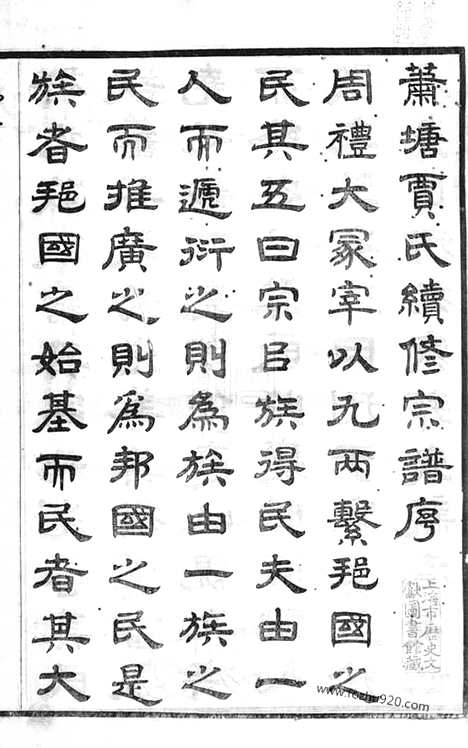 蕭塘賈氏續修宗譜序
周禮大冢宰以九兩繫邦國之
民其五曰宗㠯族得民夫由一
人而遞衍之則為族由一族之
民而推廣之則為邦國之民是
族者邦國之始基而民者其大
上海市歷史文
獻圖書館藏
www.fozhu920.com